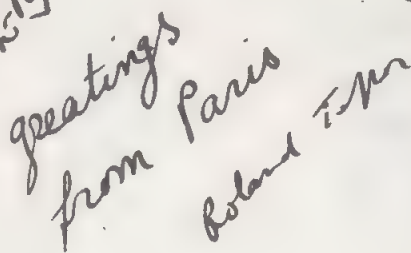 greatings
from Paris
Roland Topor